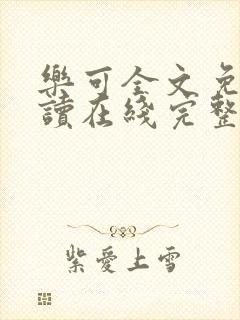 樂可全文免
讀在綫完整
紫愛上雪